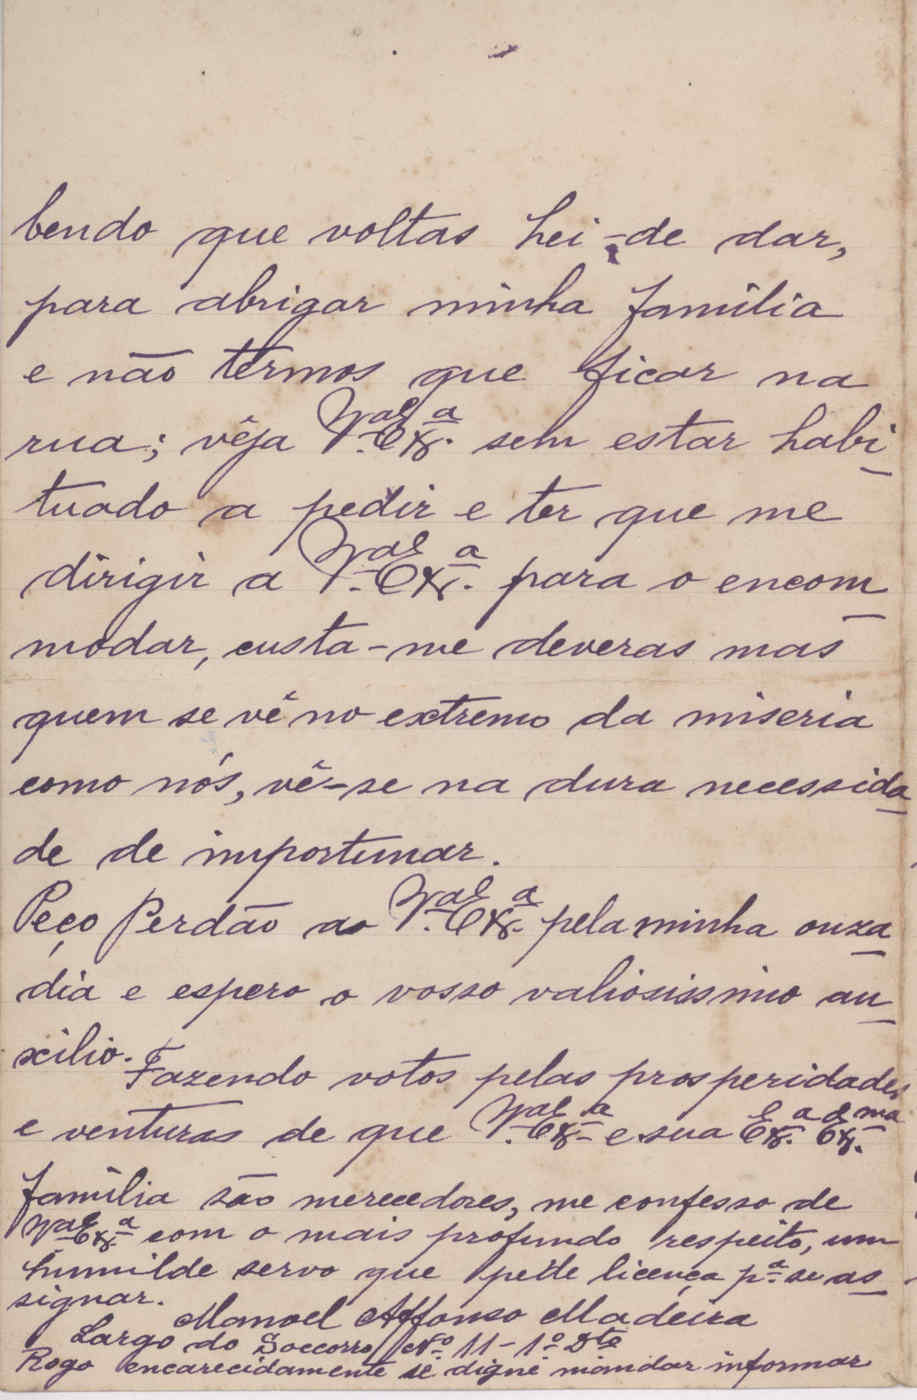 bendo que voltas hei-de dar,
para abrigar minha familia
e não têrmos que ficar na
rua; vêja V.ª Ex.ª sem estar habi
tuado a pedir e ter que me
dirigir a V.ª Ex.ª para o encom
modar, custa-me deveras mas
quem se vê no extremo da miseria
como nós, vê-se na dura necessida
de de importunar.
Peço Perdão ao V.ª Ex.ª pela minha ouza
dia e espero o vosso valiosissimo au
xilio.
Fazendo votos pelas prosperidades
e venturas de que V.ª Ex.ª e sua Ex.ª Ex.ma
familia são merecedores, me confesso de
V.ª Ex.ª com o mais profundo respeito, um
humilde servo que pede licença p.ª se as
signar.
Manoel Affonso Madeira
Largo do Soccorro Nº 11-1º Dtº
Rogo encarecidamente se digne mandar informar